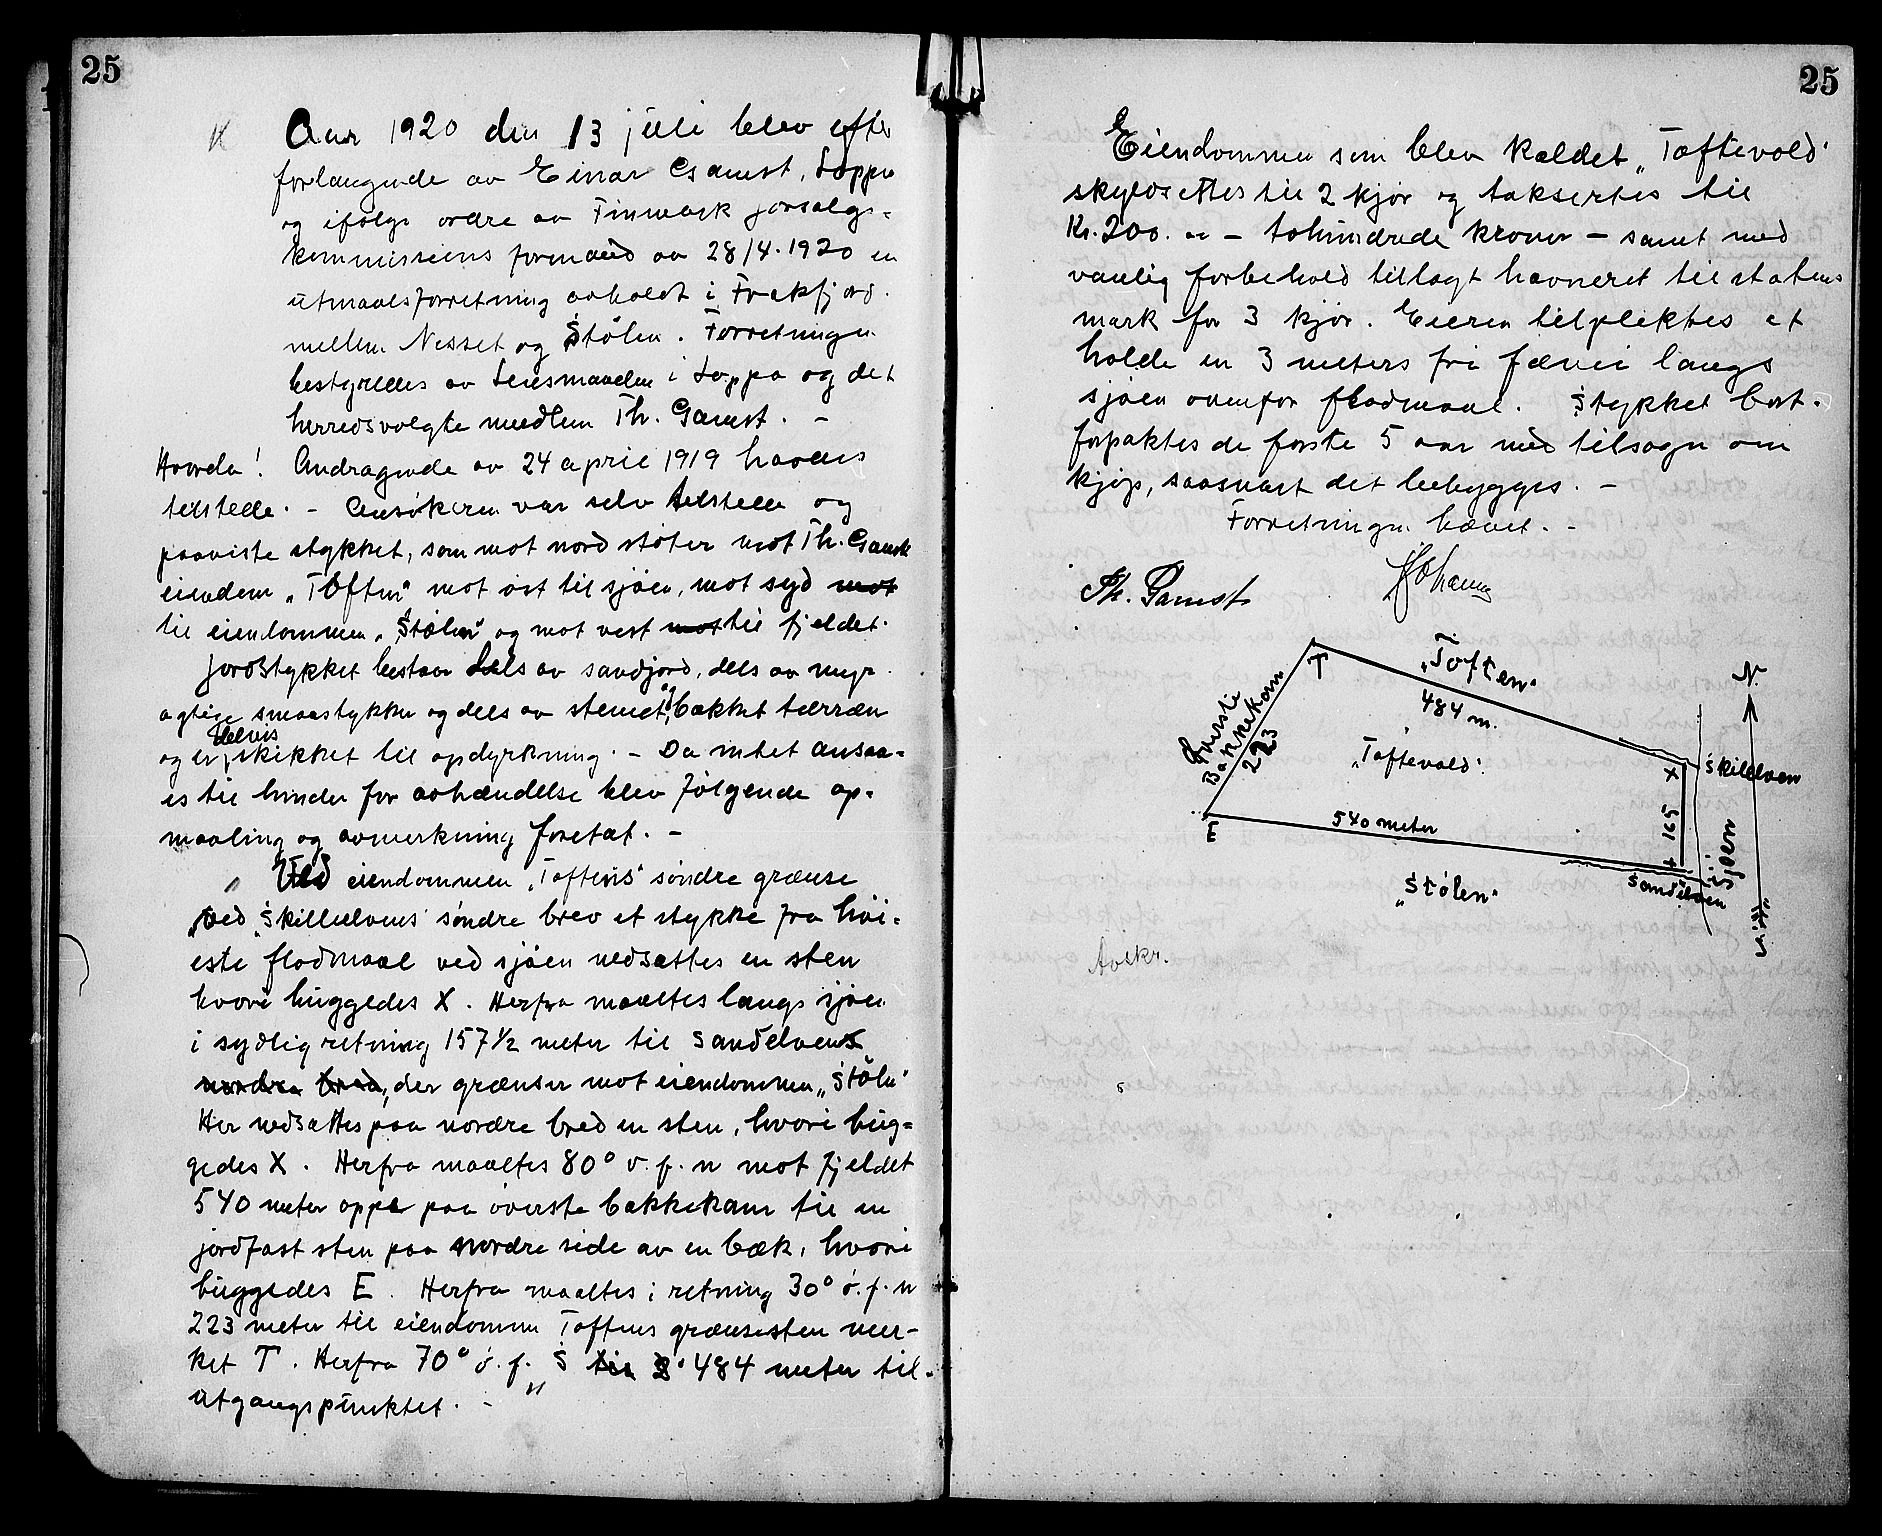 25
Aar 1920 den 13 juli blev efter
forlangende av Einar Gamst, Loppa
og ifølge ordre av Finmark jordsalgs-
kommissions formand av 28/4.1920 en
utmaalsforretning avholdt i Frakfjord
mellem Nesset og Stølen. Forretningen
bestyredes av Lensmanden i Loppa og det
herredsvalgte medlem Th. Gamst. -
Hvorda! Andragende av 24 april 1919 havdes
tilstede. - Ansøkeren var selv tilstede og
paaviste stykket, som mot nord støter mot Th. Gamsts
eiendom „Toften" mot øst til sjøen, mot syd mot
til eiendommen „Stølen" og mot vest mot til fjeldet.
Jordstykket bestaar dels av sandjord, dels av myr-
agtige smaastykker og dels av stenet, bakket terræn
og er delvis skikket til opdyrkning. - Da intet ansaa-
es til hinder for avhændelse blev følgende op-
maaling og avmerkning foretat. -
Ved eiendommen „Toftens" søndre grænse
ved „Skillelvens" søndre bred et stykke fra høi-
este flodmaal ved sjøen nedsættes en sten
hvori huggedes X. Herfra maaltes langs sjøen
i sydlig retning 157 1/2 meter til Sandelvens
nordre bred, der grænser mot eiendommen „Stølen"
Her nedsattes paa nordre bred en sten, hvori hug-
gedes X. Herfra maaltes 80° v. f. n mot fjeldet
540 meter oppe paa øverste bakkekam til en
jordfast sten paa nordre side av en bæk, hvori
huggedes E. Herfra maaltes i retning 30° ø. f. n
223 meter til eiendommen Toftens grænsesten mer-
ket T. Herfra 70° ø. f. S til 484 meter til
utgangspunktet. -
25
Eiendommen som blev kaldet „Toftevold"
skyldsettes til 2 kjør og taksertes til
Kr. 200. - tohundrede kroner - samt med
vanlig forbehold tillagt havneret til statens
mark for 3 kjør. Eieren tilpliktes at
holde en 3 meters fri færei langs
sjøen ovenfor flodmaal. Stykket bort-
forpaktes de første 5 aar med tilsagn om
kjøp, saasnart det bebygges. -
Forretningen hævet. -
Th. Gamst
„Toften"
484 m.
T
Øverste
Bakkekam
223
„Toftevold"
N.
X
Skillelven
165
540 meter
E
X
Sjøen
Sandelven
„Stølen"
Avskr.